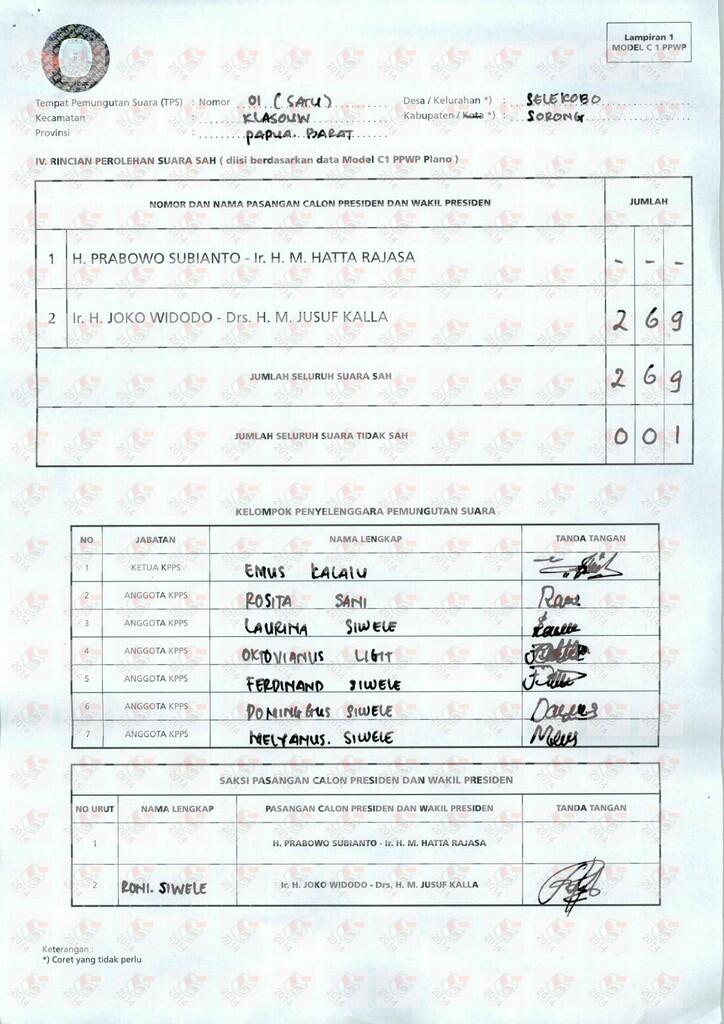 Lampiran 1
MODEL C 1 PPWP
Tempat Pemungutan Suara (TPS) : Nomor 01 (SATU) Desa / Kelurahan *) : SELEKOBO
Kecamatan : KLASOUW Kabupaten / Kota *) : SORONG
Provinsi : PAPUA. BARAT
IV. RINCIAN PEROLEHAN SUARA SAH ( diisi berdasarkan data Model C1 PPWP Plano )
NOMOR DAN NAMA PASANGAN CALON PRESIDEN DAN WAKIL PRESIDEN JUMLAH
1 H. PRABOWO SUBIANTO - Ir. H. M. HATTA RAJASA - - -
2 Ir. H. JOKO WIDODO - Drs. H. M. JUSUF KALLA 2 6 9
JUMLAH SELURUH SUARA SAH 2 6 9
JUMLAH SELURUH SUARA TIDAK SAH 0 0 1
KELOMPOK PENYELENGGARA PEMUNGUTAN SUARA
NO JABATAN NAMA LENGKAP TANDA TANGAN
1 KETUA KPPS EMUS KALALU
2 ANGGOTA KPPS ROSITA SANI
3 ANGGOTA KPPS LAURINA SIWELE
4 ANGGOTA KPPS OKTOVIANUS LIGIT
5 ANGGOTA KPPS FERDINAND SIWELE
6 ANGGOTA KPPS DOMINGGUS SIWELE
7 ANGGOTA KPPS MELYANUS. SIWELE
SAKSI PASANGAN CALON PRESIDEN DAN WAKIL PRESIDEN
NO URUT NAMA LENGKAP PASANGAN CALON PRESIDEN DAN WAKIL PRESIDEN TANDA TANGAN
1 H. PRABOWO SUBIANTO - Ir. H. M. HATTA RAJASA
2 RONI. SIWELE Ir. H. JOKO WIDODO - Drs. H. M. JUSUF KALLA
Keterangan :
*) Coret yang tidak perlu